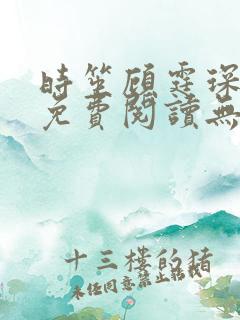 時笙顧霆琛
免費閱讀無
十三樓的猪
未经同意禁止転載